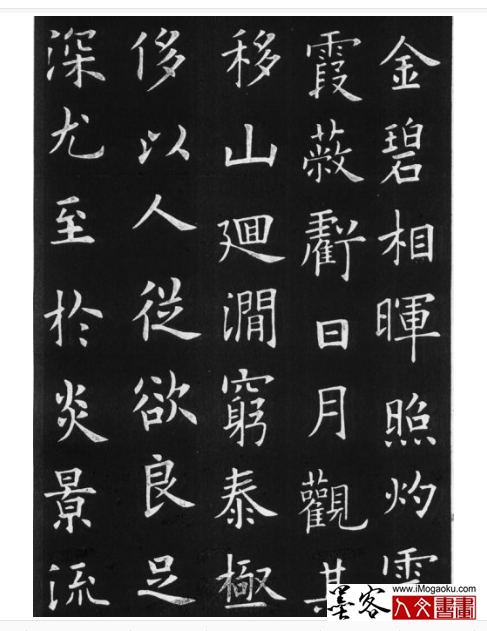 金碧相暉照灼雲
霞蔽虧日月觀其
移山廻澗窮泰極
侈以人從欲良足
深尤至於炎景流
墨客
www.iMogaoku.com
人文書畫